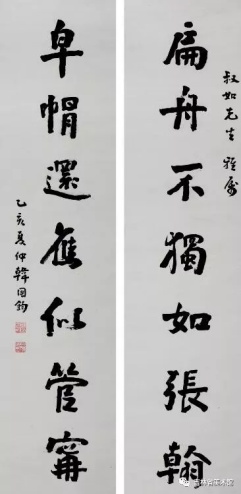 叔如先生 雅属
扁舟不獨如張翰
皁帽還應似管寗
乙亥夏仲韓國鈞